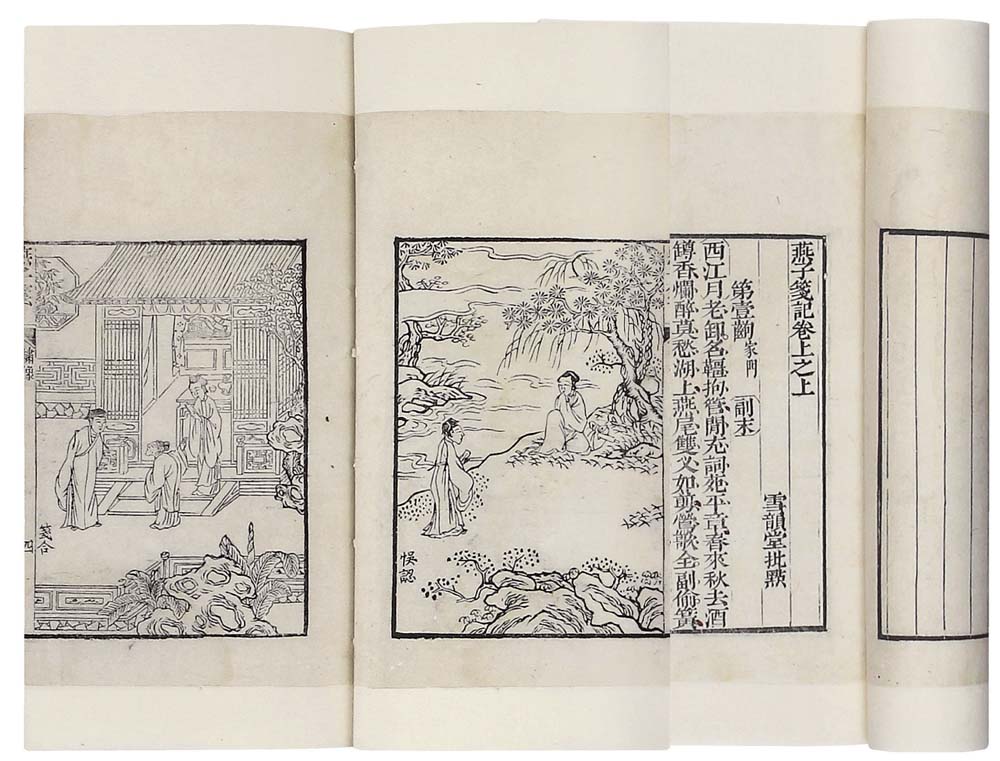 燕子箋記卷上之上
雪韻堂批點
第壹齣 家門 副末
西江月老卸名韁拘管閒充詞苑平章春來秋去酒
罇香爛醉莫愁湖上燕尾雙叉如剪鶯歌全副偷簧
悞認
箋合
四